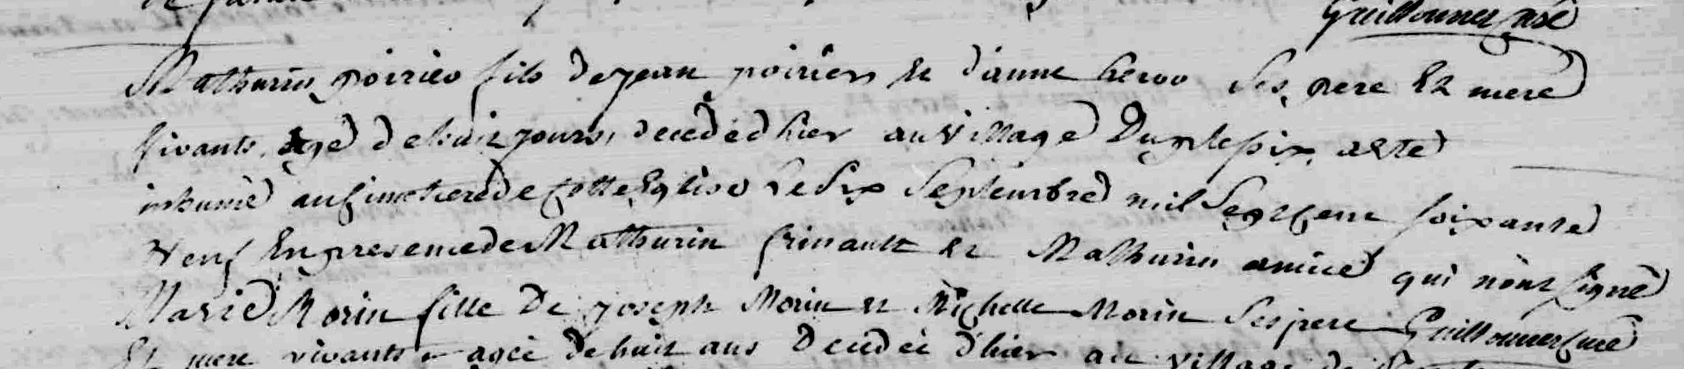 Guillonner curé
Mathurin poirier fils de jean poirier et d'anne heroo Ses pere Et mere
vivants agé de huit jours, decedé d'hier au village Du plessix a esté
inhumé au Cimetiere de Cette Eglise Le Six Septembre mil Sept Cent soixante
Neuf En presence de Mathurin frinault et Mathurin amice qui n'ont Signé
Guillonner curé
Marie Morin fille De joseph Morin et Michelle Morin Ses pere
Et mere vivants agée de huit ans Decedée d'hier au village de